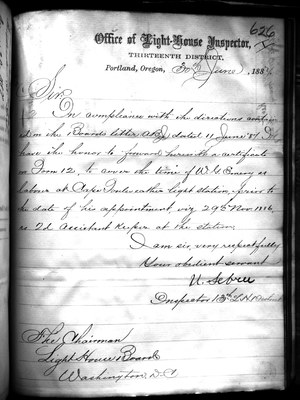 626
Office of Light-House Inspector,
THIRTEENTH DISTRICT,
Portland, Oregon, 30 June, 188
Sir
In compliance with the directions contain
in the Board's letter dated 11 June '87 I
have the honor to forward herewith a certificate
on Form 12, to cover the time of W. G. Emery as
Labourer at Cape light station prior to
the date of his appointment, viz 29th Nov. 1886,
as 2d Assistant Keeper at the station.
I am sir, very respectfully
Your obedient servant
U. Sebree
Inspector 13th L.H. District
The Chairman
Light House Board
Washington D.C